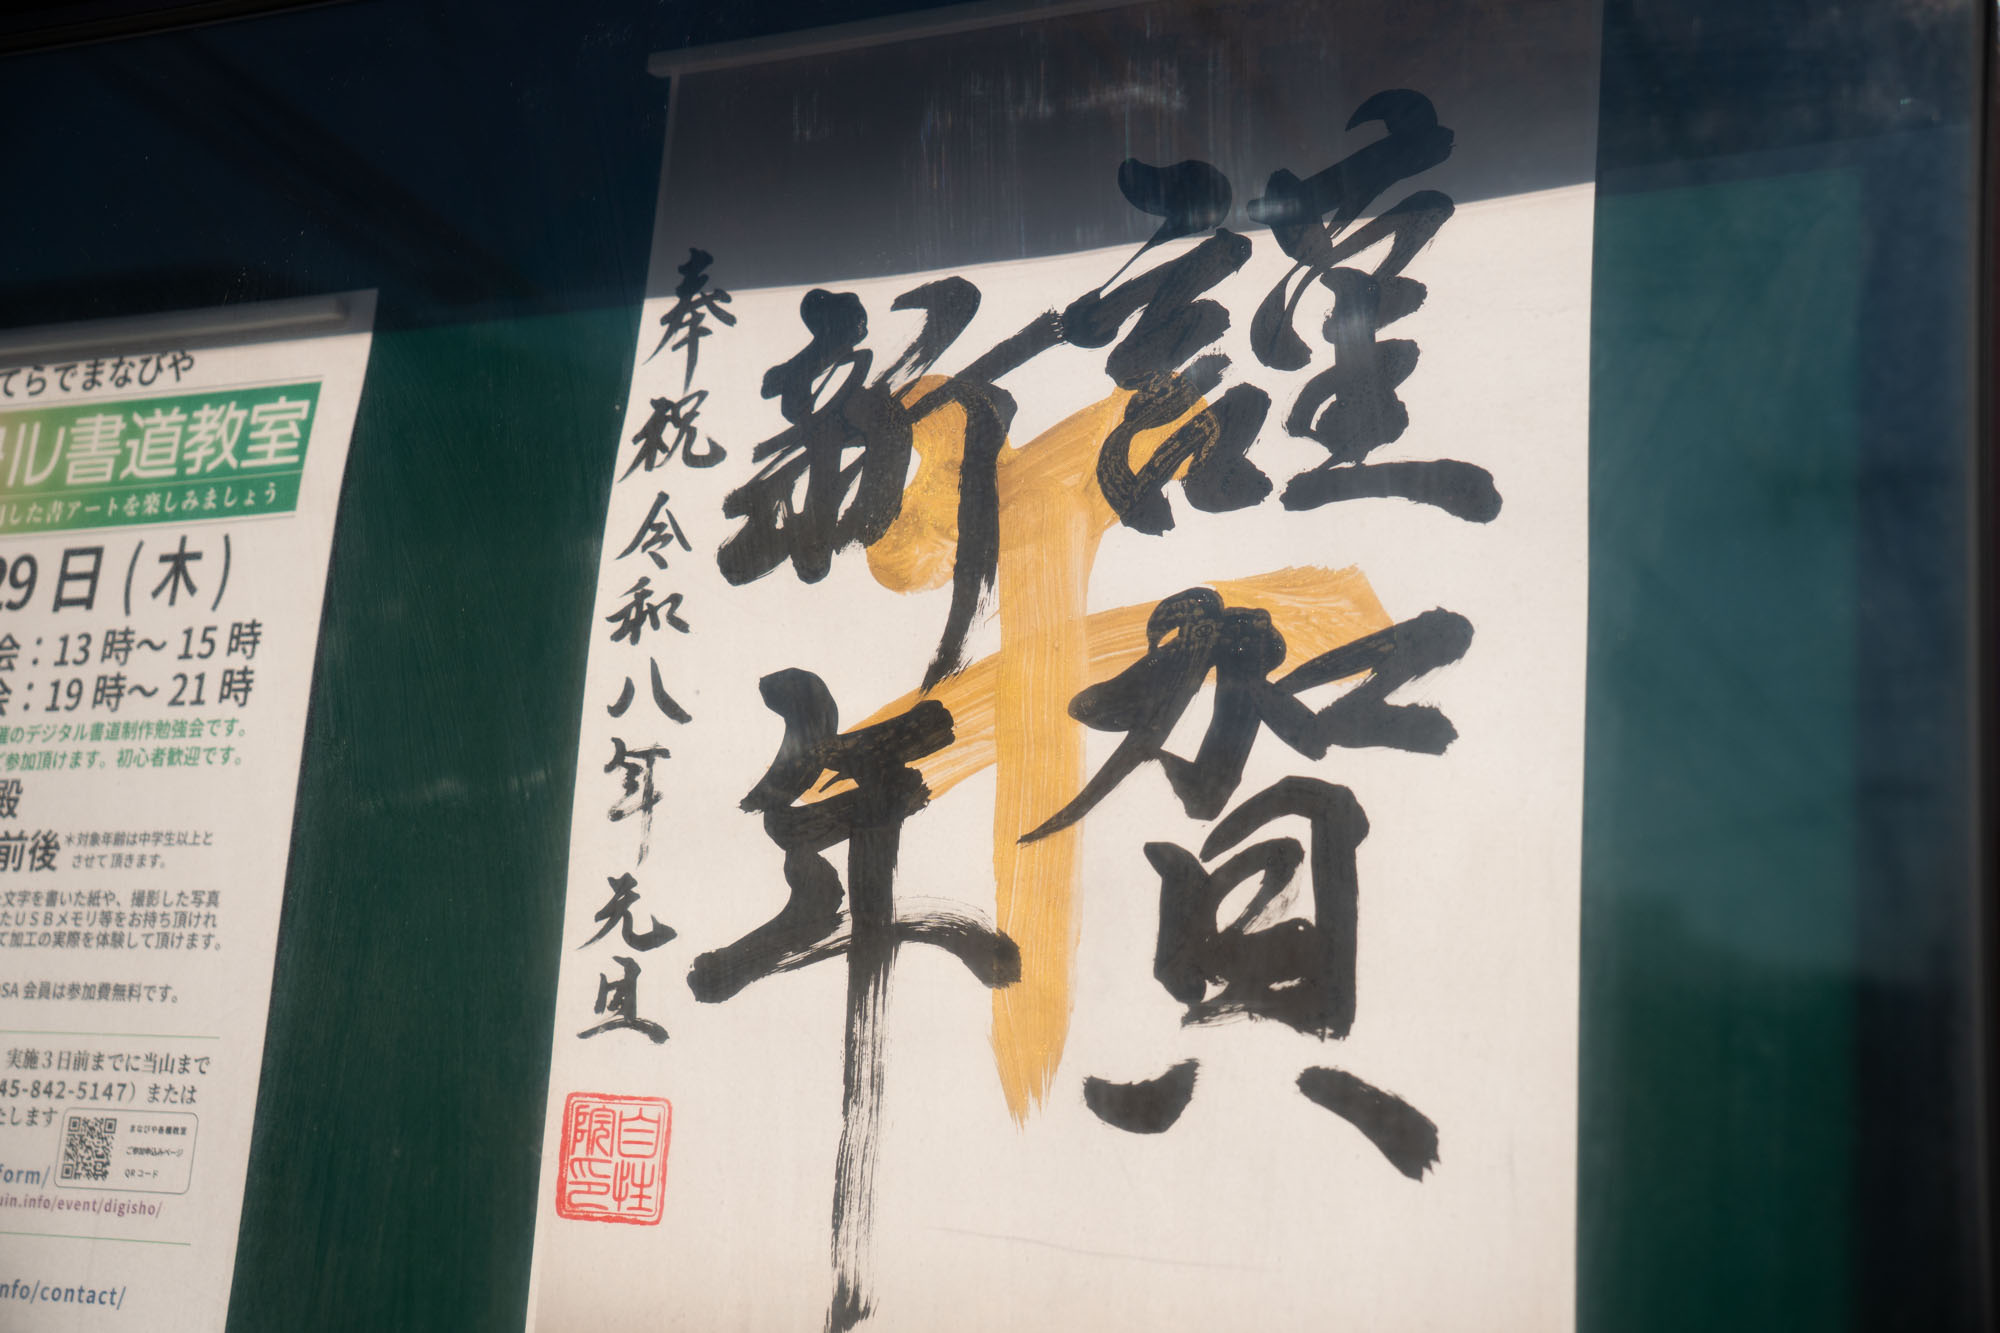 謹賀
新年
奉祝 令和八年 元旦
自性
院印
てらでまなびや
タル書道教室
した書アートを楽しみましょう
29日(木)
会：13時～15時
会：19時～21時
催のデジタル書道制作勉強会です。
ご参加頂けます。初心者歓迎です。
殿
前後
＊対象年齢は中学生以上と
させて頂きます。
文字を書いた紙や、撮影した写真
たＵＳＢメモリ等をお持ち頂けれ
て加工の実際を体験して頂けます。
OSA会員は参加費無料です。
実施３日前までに当山まで
45-842-5147）または
たします
まなびや各種教室
ご参加申込みページ
QRコード
form/
uin.info/event/digisho/
nfo/contact/